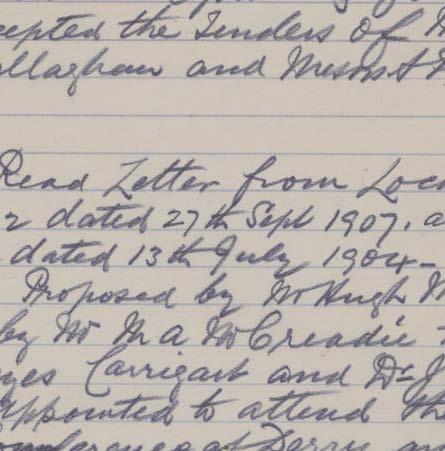 cepted the Tenders of
allaghan and Messrs
Read Letter from Loca
2 dated 27th Sept 1907. a
dated 13th July 1904-
Proposed by Mr Hugh
by Mr M A McCreadie
yes Carrigart and Dr J
appointed to attend th
Conference at Derry an